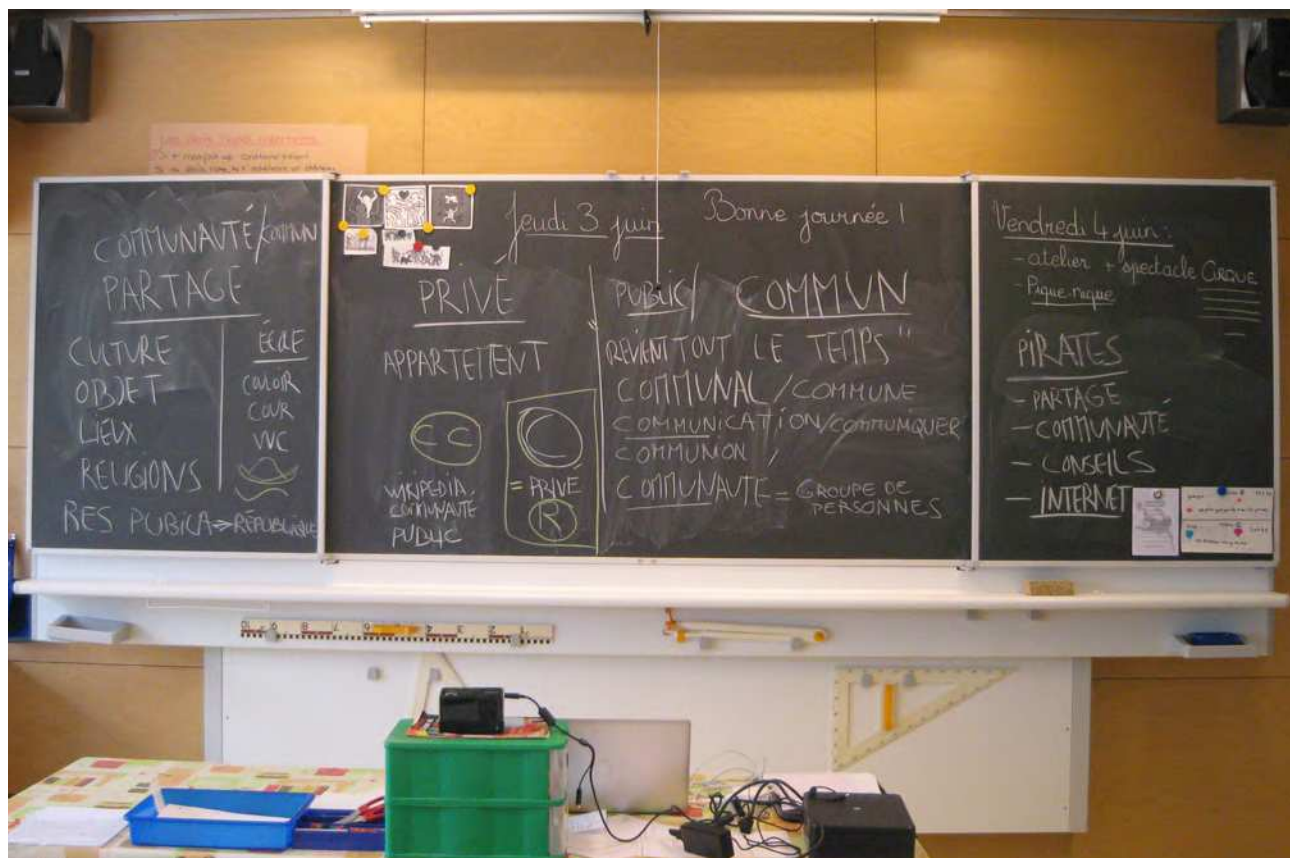 COMMUNAUTÉ/COMMUN
PARTAGE
CULTURE
OBJET
LIEUX
RELIGIONS
ÉCOLE
COULOIR
COUR
WC
RES PUBICA ⇒ RÉPUBLIQUE
Jeudi 3 juin
Bonne journée !
PRIVÉ
APPARTETTENT
CC
WIKIPEDIA.
COMMUNAUTE
PUBLIC
C
= PRIVÉ
R
PUBLIC/ COMMUN
"REVIENT TOUT LE TEMPS"
COMMUNAL / COMMUNE
COMMUNICATION/COMMUNIQUER
COMMUNION /
COMMUNAUTE = GROUPE DE
PERSONNES
Vendredi 4 juin :
- atelier + spectacle CIRQUE
- Pique-nique
PIRATES
- PARTAGE
- COMMUNAUTÉ
- CONSEILS
- INTERNET
10 9 8 7 6 4 3 2 1